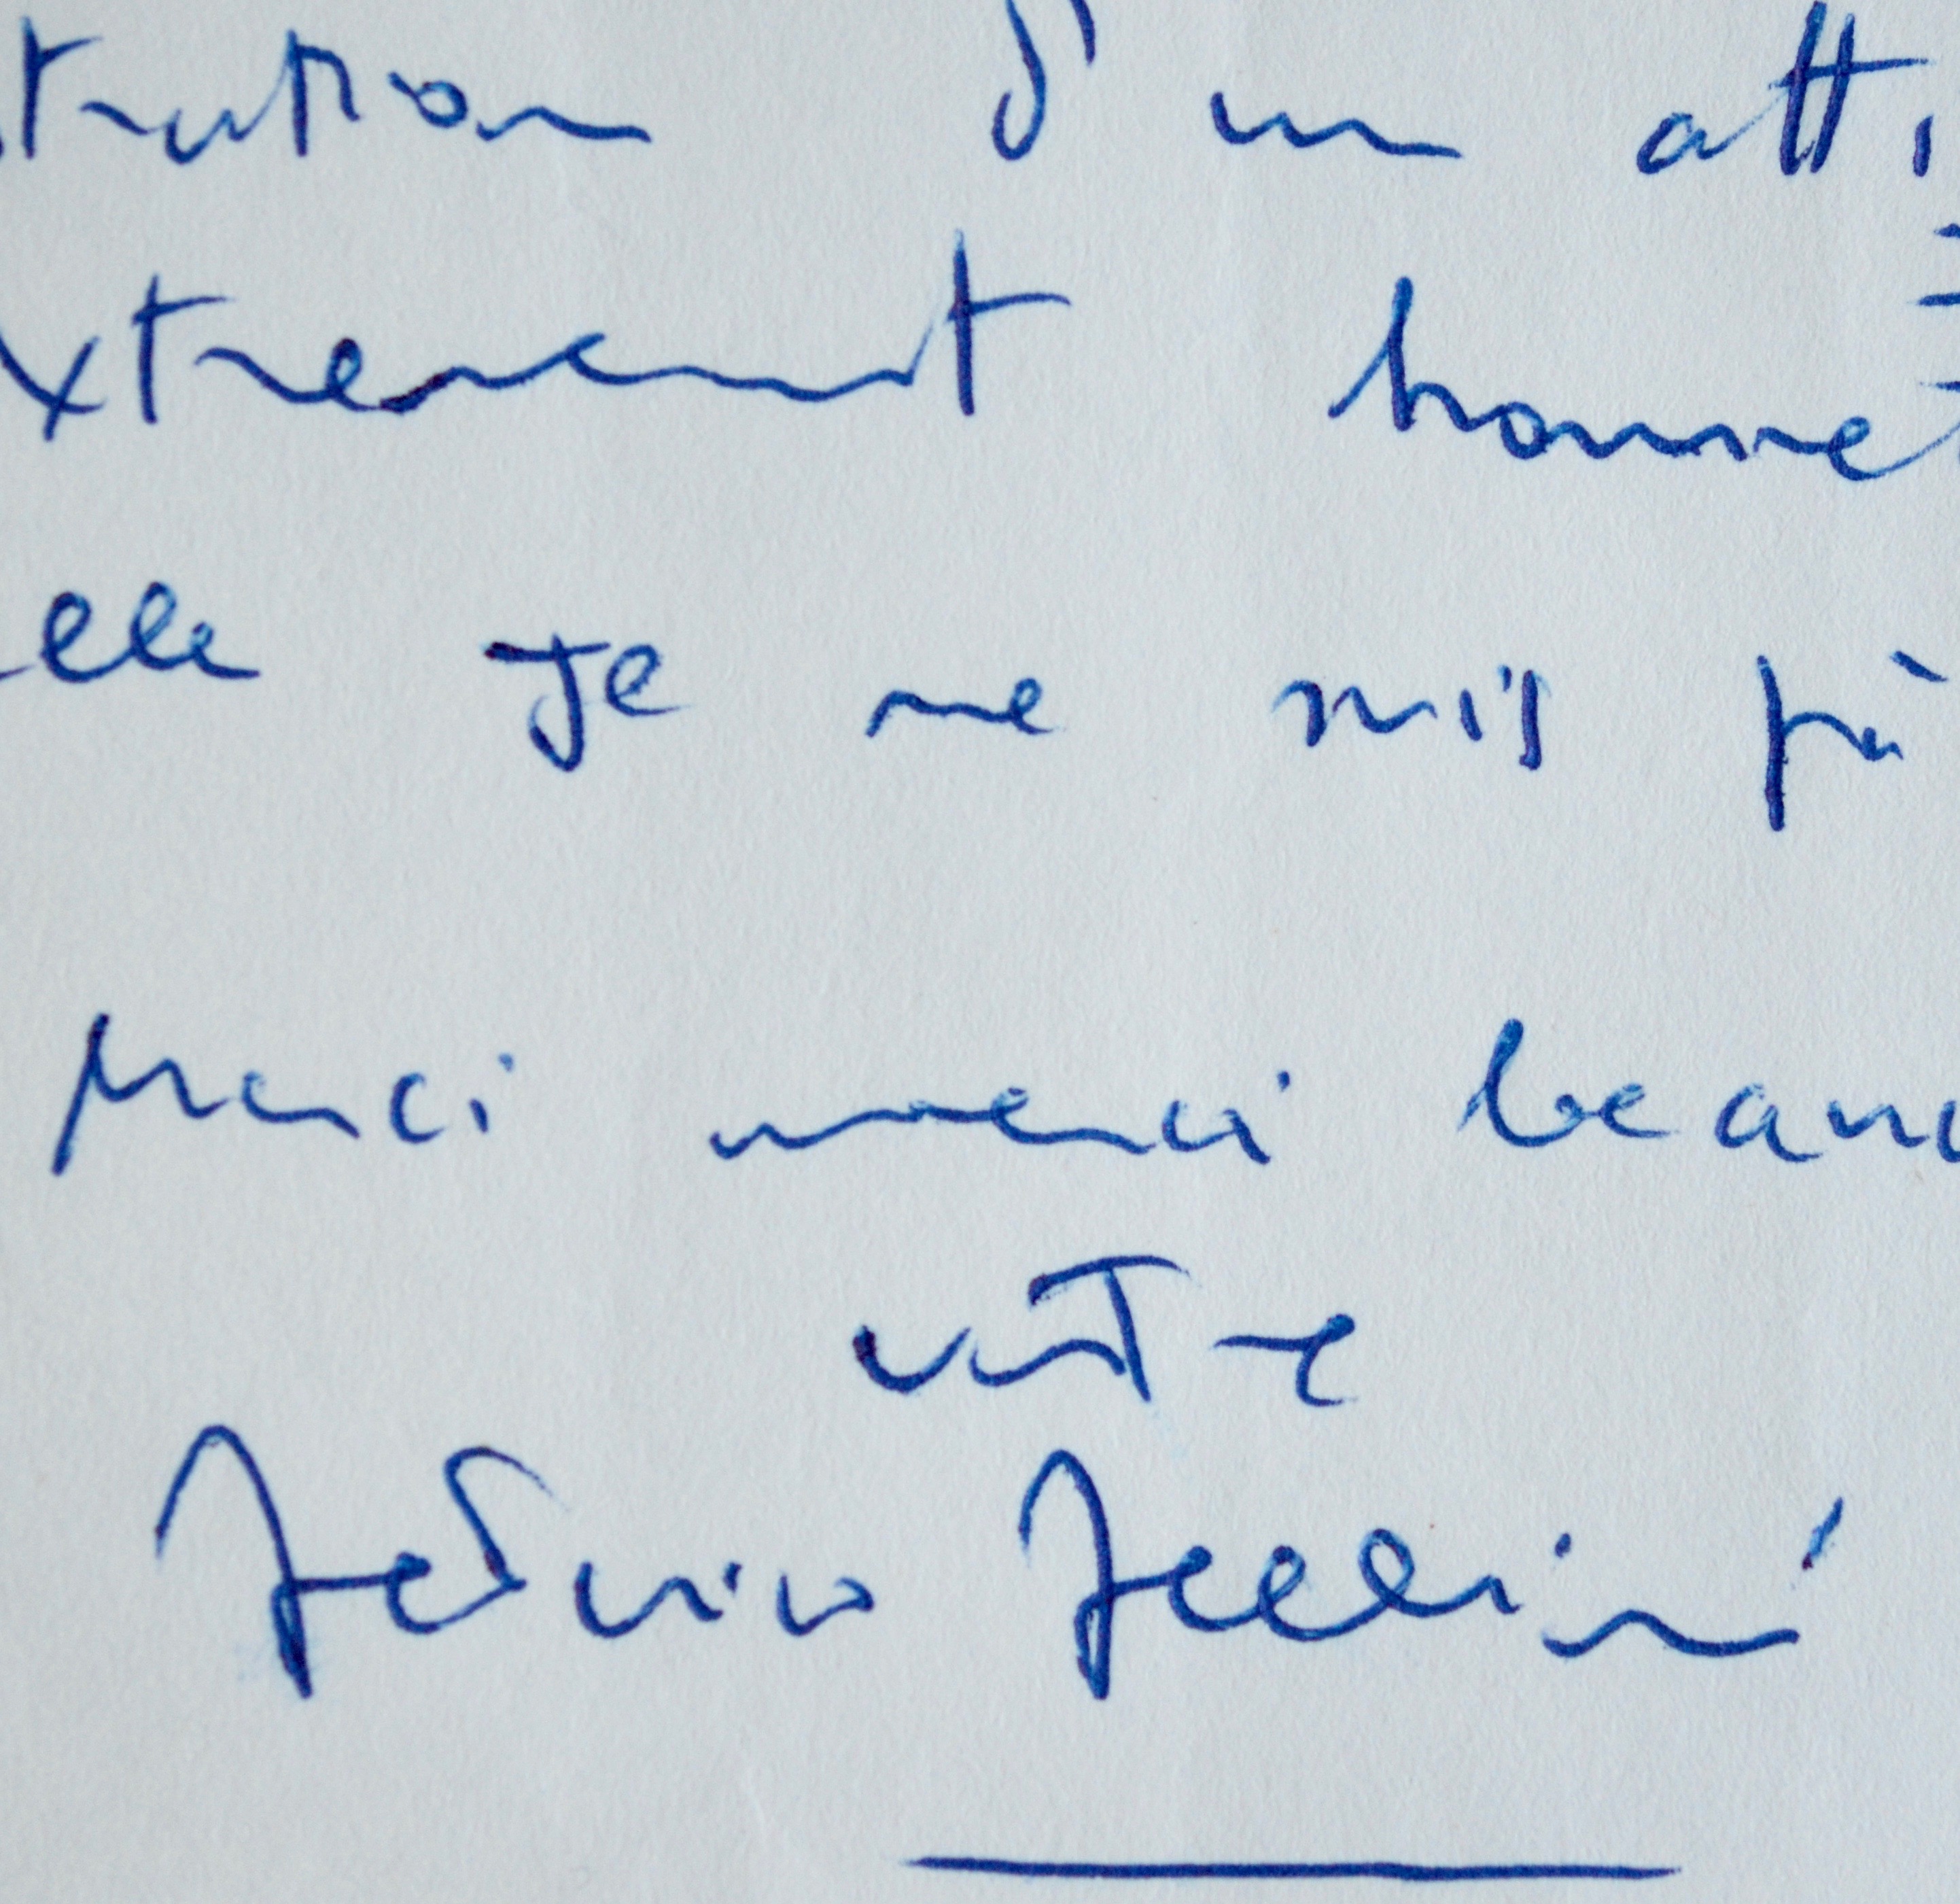 truction d'un atti
xtremement honnet
elle je ne suis pa
Merci merci beauc
votre
Federico Fellini